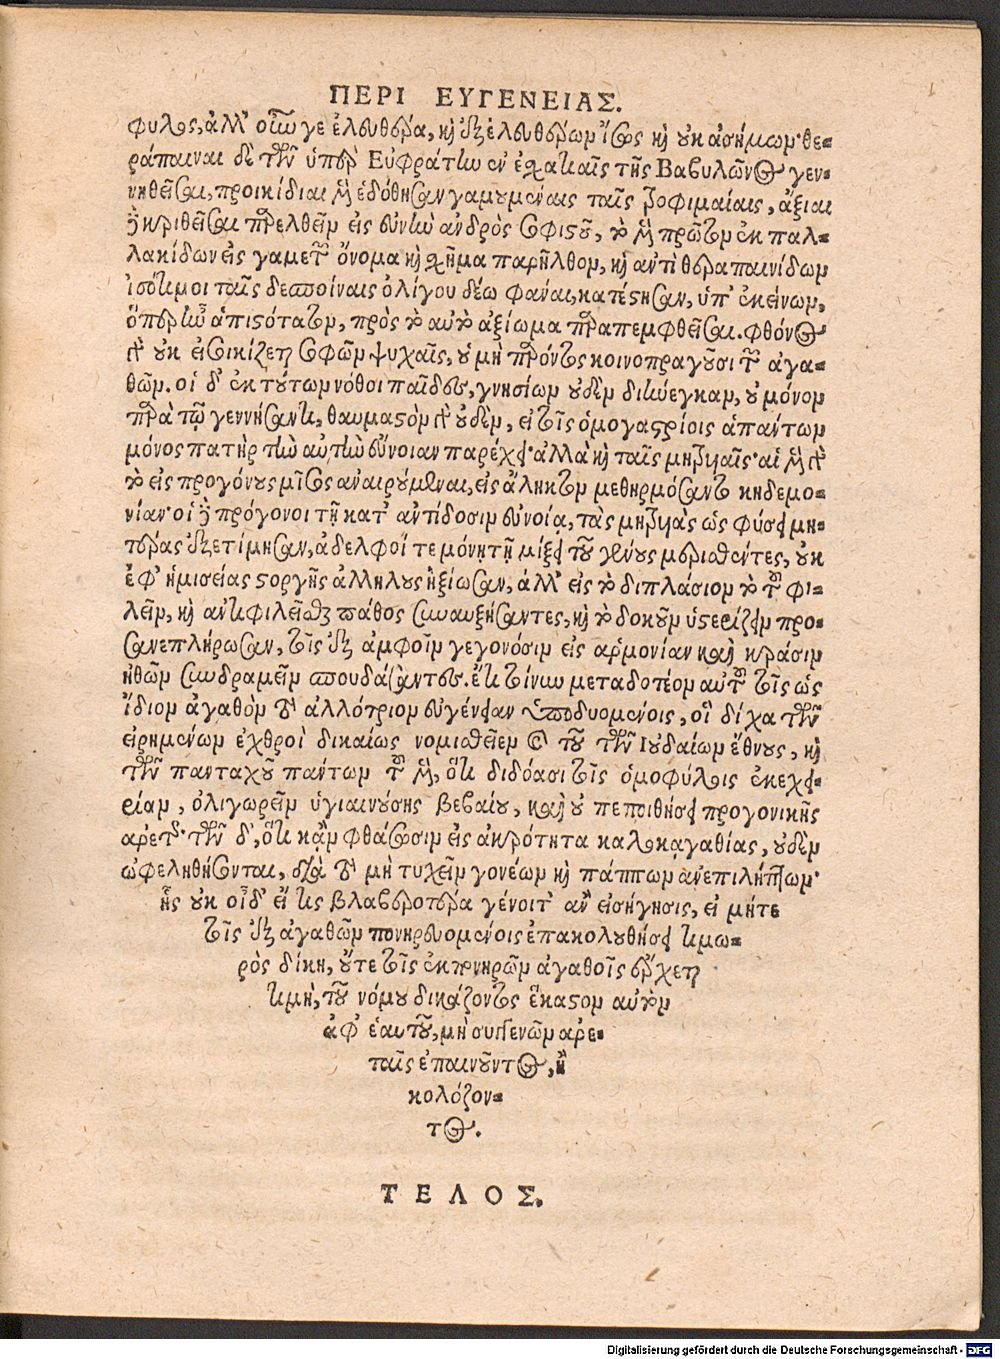 ΠΕΡΙ ΕΥΓΕΝΕΙΑΣ.
φυλος, ἀλλ' οὖν γε ἐλευθέρα, καὶ ἐξ ἐλευθέρων ἴσως καὶ οὐκ ἀσήμων· θε-
ράπαιναι δὲ τῶν ὑπὲρ Εὐφράτην ἐν ἐσχατιαῖς τῆς Βαβυλῶνος γεν-
νηθεῖσαι, προικίδιαι μὲν ἐδόθησαν γαμουμέναις ταῖς τροφίμαις, ἄξιαι
δὲ κριθεῖσαι παρελθεῖν εἰς εὐνὴν ἀνδρὸς σοφοῦ, τὸ μὲν πρῶτον ἐκ παλ-
λακίδων εἰς γαμετῶν ὄνομα καὶ σχῆμα παρῆλθον, καὶ ἀντὶ θεραπαινίδων
ἰσότιμοι ταῖς δεσποίναις ὀλίγου δέω φάναι, κατέστησαν, ὑπ' ἐκείνων,
ὅπερ ἦν ἀπιστότατον, πρὸς τὸ αὐτὸ ἀξίωμα παραπεμφθεῖσαι. φθόνος
γὰρ οὐκ εἰσοικίζεται σοφῶν ψυχαῖς, οὗ μὴ παρόντος κοινοπραγοῦσι τῶν ἀγα-
θῶν. οἱ δ' ἐκ τούτων νόθοι παῖδες, γνησίων οὐδὲν διήνεγκαν, οὐ μόνον
παρὰ τῷ γεννήσαντι, θαυμαστὸν γὰρ οὐδὲν, εἰ τοῖς ὁμογαστρίοις ἁπάντων
μόνος πατὴρ τὴν αὐτὴν εὔνοιαν παρέχει· ἀλλὰ καὶ ταῖς μητρυιαῖς· αἱ μὲν γὰρ
τὸ εἰς προγόνους μῖσος ἀναιρούμεναι, εἰς ἄληκτον μεθηρμόσαντο κηδεμο-
νίαν· οἱ δὲ πρόγονοι τῇ κατ' ἀντίδοσιν εὐνοίᾳ, τὰς μητρυιὰς ὡς φύσει μη-
τέρας ἐξετίμησαν, ἀδελφοί τε μόνῃ τῇ μίξει τοῦ γένους μερισθέντες, οὐκ
ἐφ' ἡμισείας στοργῆς ἀλλήλους ἠξίωσαν, ἀλλ' εἰς τὸ διπλάσιον τὸ τῶν φι-
λεῖν, καὶ ἀντιφιλεῖσθαι πάθος συναυξήσαντες, καὶ τὸ δοκοῦν ὑστερίζειν προ-
σανεπλήρωσαν, τοῖς ἐξ ἀμφοῖν γεγονόσιν εἰς ἁρμονίαν καὶ κρᾶσιν
ἠθῶν συνδραμεῖν σπουδάσαντες. ἔτι τοίνυν μεταδοτέον αὐτῶν τοῖς ὡς
ἴδιον ἀγαθὸν τὸ ἀλλότριον εὐγένειαν ὑποδυομένοις, οἳ δίχα τῶν
εἰρημένων ἐχθροὶ δικαίως νομισθεῖεν ἂν τοῦ τῶν Ιουδαίων ἔθνους, καὶ
τῶν πανταχοῦ πάντων τῶν μὲν, ὅτι διδόασι τοῖς ὁμοφύλοις ἐκεχει-
ρίαν, ὀλιγωρεῖν ὑγιαινούσης βεβαίου, καὶ οὐ πεποιθήσει προγονικῆς
ἀρετῆς· τῶν δ', ὅτι κἂν φθάσωσιν εἰς ἀκρότητα καλοκαγαθίας, οὐδὲν
ὠφεληθήσονται, διὰ τὸ μὴ τυχεῖν γονέων καὶ πάππων ἀνεπιλήπτων·
ἧς οὐκ οἶδ' εἴ τις βλαβερωτέρα γένοιτ' ἂν εἰσήγησις, εἰ μήτε
τοῖς ἐξ ἀγαθῶν πονηρευομένοις ἐπακολουθήσει τιμω-
ρὸς δίκη, οὔτε τοῖς ἐκ πονηρῶν ἀγαθοῖς εὕχεται
τιμὴ, τοῦ νόμου δικάζοντος ἕκαστον αὐτὸν
ἀφ' ἑαυτοῦ, μὴ συγγενῶν ἀρε-
ταῖς ἐπαινοῦντος, ἢ
κολάζον-
τος.
ΤΕΛΟΣ.
Digitalisierung gefördert durch die Deutsche Forschungsgemeinschaft - DFG